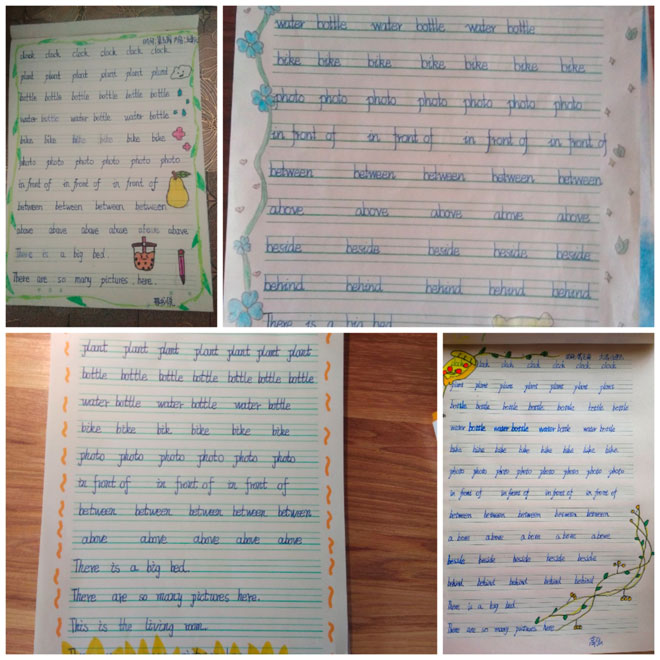 clock clock clock clock clock clock
plant plant plant plant plant plant
bottle bottle bottle bottle bottle bottle
water bottle water bottle water bottle
bike bike bike bike bike bike
photo photo photo photo photo photo
in front of in front of in front of
between between between between
above above above above above above
There is a big bed.
There are so many pictures here.
water bottle water bottle water bottle
bike bike bike bike bike bike bike
photo photo photo photo photo photo photo
in front of in front of in front of in front of
between between between between between
above above above above above
beside beside beside beside beside
behind behind behind behind behind
There is a big bed
plant plant plant plant plant plant plant
bottle bottle bottle bottle bottle bottle bottle
water bottle water bottle water bottle
bike bike bik bike bike bike
photo photo photo photo photo photo
in front of in front of in front of
between between between between between
above above above above above
There is a big bed.
There are so many pictures here.
This is the living room.
clock clock clock clock clock clock
plant plant plant plant plant plant plant
bottle bottle bottle bottle bottle bottle bottle
water bottle water bottle water bottle water bottle
bike bike bike bike bike bike bike
photo photo photo photo photo photo photo photo
in front of in front of in front of in front of
between between between between between
above above above above above
beside beside beside beside beside
behind behind behind behind behind
There is a big bed
There are so many pictures here